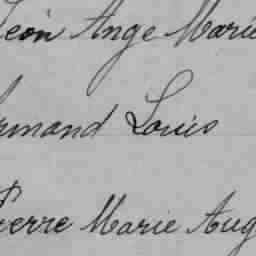 Léon Ange Marie
rmand Louis
Pierre Marie Aug